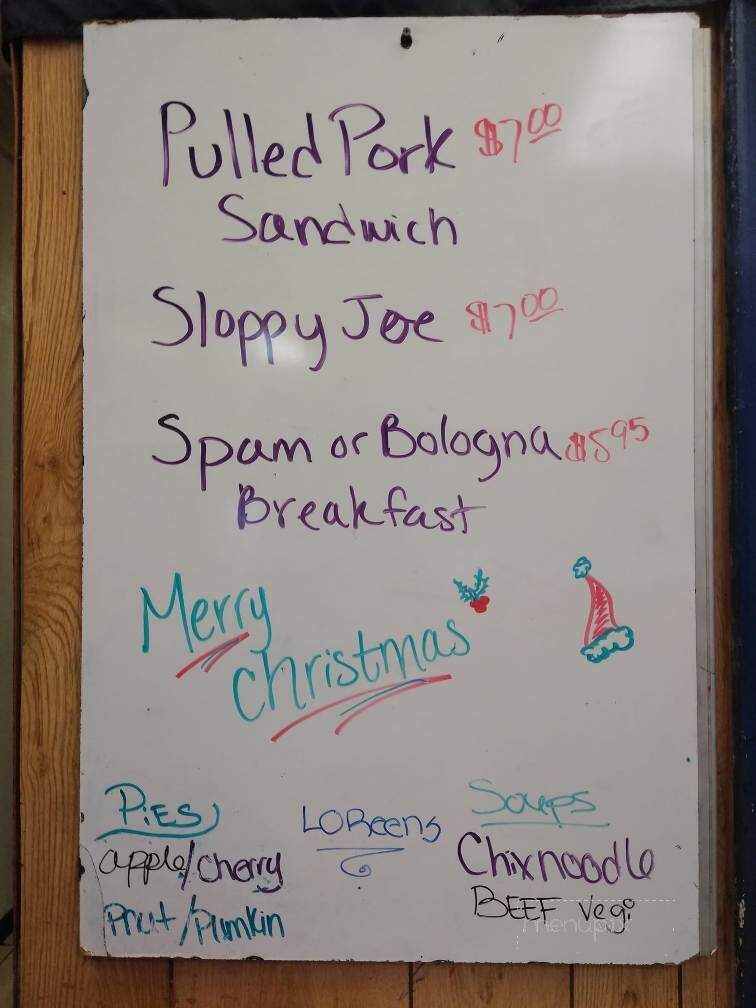 Pulled Pork $7.00
Sandwich
Sloppy Joe $7.00
Spam or Bologna $5.95
Breakfast
Merry
christmas
PiES
apple/cherry
Pnut/Pumkin
LOReens
Soups
Chixnoodle
BEEF vegi
menupix